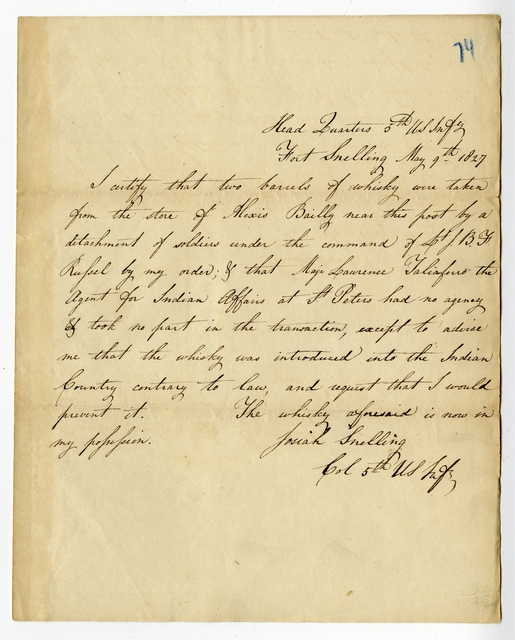 74
Head Quarters 5th US Infy
Fort Snelling May 9th 1827
I certify that two barrels of whisky were taken
from the store of Alexis Bailly near this post by a
detachment of soldiers under the command of Lt J B F
Russel by my order; & that Maj Lawrence Taliaferro the
Agent for Indian Affairs at St Peters had no agency
& took no part in the transaction, except to advise
me that the whisky was introduced into the Indian
Country contrary to law, and request that I would
prevent it. The whisky aforesaid is now in
my possession. Josiah Snelling
Col 5th US Infy